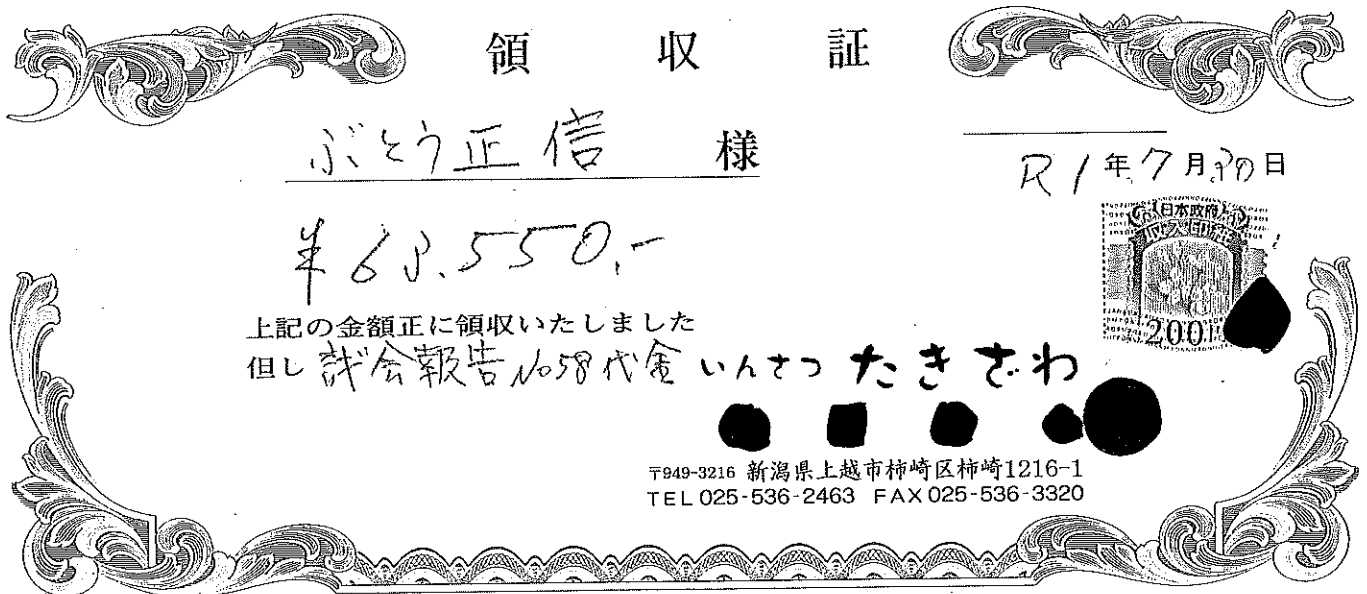 領収証
ぶとう正信 様
R1年7月30日
¥63,550.-
日本政府
収入印紙
200
上記の金額正に領収いたしました
但し 議会報告 No58代金
いんさつ たきざわ
〒949-3216 新潟県上越市柿崎区柿崎1216-1
TEL 025-536-2463 FAX 025-536-3320